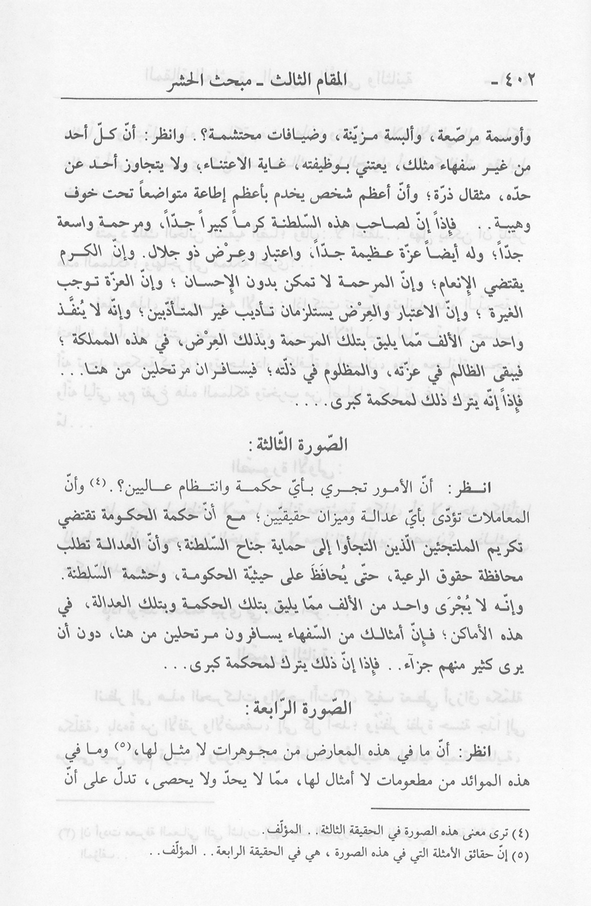 ٤٠٢ - المقام الثالث - مبحث الحشر
وأوسمة مرصّعة، وألبسة مـزيّنة، وضيـافات محتشمـة؟. وانظر: أنّ كـلّ أحد
من غيـر سفهاء مثلك، يعتني بـوظيفته، غـاية الاعتنـاء؛ ولا يتجاوز أحـد عن
حدّه، مثقال ذرّة؛ وأنّ أعظم شخص يخدم بأعظم إطاعة متواضعاً تحت خوف
وهيبـة. . فإذاً إنّ لصـاحب هذه السّلطنـة كرماً كبيراً جـدّاً، ومرحمـة واسعة
جدّاً؛ وله أيضـاً عزّة عظيمة جـدّاً، واعتبار وعِـرْض ذو جلال. وإنّ الكـرم
يقتضي الإنعام؛ وإنّ المرحمـة لا تمكن بدون الإحسان ؛ وإنّ العزّة تـوجب
الغيرة ؛ وإنّ الاعتبار والعِرْض يستلزمان تأديب غير المتـأدّبين؛ وإنّه لا يُنفَّذ
واحد من الألف ممّا يليق بتلك المرحمة وبذلك العِرْض، في هذه المملكة ؛
فيبقى الظالم في عزّته، والمظلوم في ذلّته؛ فيسـافـران مرتحلين من هنـا. . .
فإذاً إنّه يترك ذلك لمحكمة كبرى. . . .
الصّورة الثّالثة:
انـظر: أنّ الأمـور تجـري بـأيّ حكمـة وانتظام عـاليين؟. (٤) وأنّ
المعاملات تؤدّى بأيّ عدالـة وميزان حقيقيّين؛ مـع أنّ حكمة الحكـومة تقتضي
تكريم الملتجئين الّذين التجأوا إلى حماية جناح السّلطنة؛ وأنّ العدالـة تطلب
محافظة حقوق الرعية، حتّى يُحافَظَ على حيثيّة الحكومـة، وحشمة السّلطنـة.
وإنّـه لا يُجْرَى واحـد من الألف ممّا يليق بتلك الحكمـة وبتلك العدالـة، في
هذه الأماكن؛ فـإنّ أمثالـك من السّفهاء يسـافـرون مـرتحلين من هنـا، دون أن
يرى كثير منهم جزآء. . فإذاً إنّ ذلك يترك لمحكمة كبرى. . .
الصّورة الرّابعة:
انظر: أنّ ما في هذه المعارض من مجـوهرات لا مثـل لها، (٥) ومـا في
هذه الموائد من مطعومات لا أمثال لها، ممّا لا يحدّ ولا يحصى، تدلّ على أنّ
(٤) ترى معنى هذه الصورة في الحقيقة الثالثة. . المؤلّف.
(٥) إنّ حقائق الأمثلة التي في هذه الصورة ، هي في الحقيقة الرابعة. . المؤلّف. .